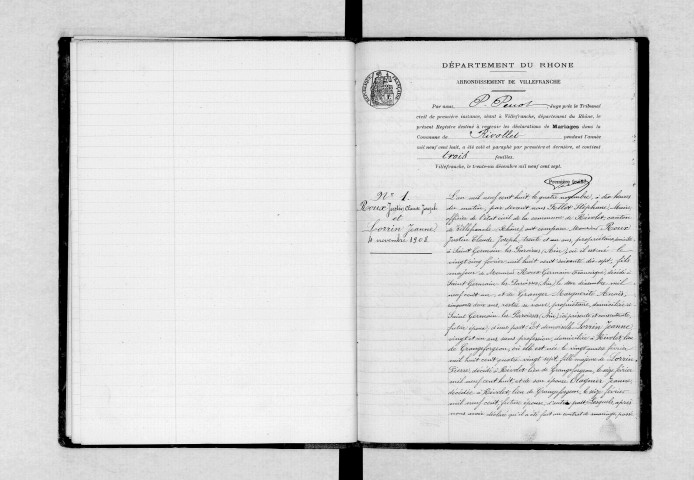 DÉPARTEMENT DU RHONE
ARRONDISSEMENT DE VILLEFRANCHE
Par nous, P. Penot Juge près le Tribunal
civil de première instance, séant à Villefranche, département du Rhône, le
présent Registre destiné à recevoir les déclarations de Mariages dans la
Commune de Rivollet pendant l'année
mil neuf cent huit, a été coté et paraphé par première et dernière, et contient
trois feuilles.
Villefranche, le trente-un décembre mil neuf cent sept.
Première feuille
N° 1.
Roux Justin Claude Joseph
et
Lorrin Jeanne
4 novembre 1908
L'an mil neuf cent huit le quatre novembre, à dix heures
du matin, par devant nous Stéphane, Maire
officier de l'état civil de la commune de Rivolet, canton
de Villefranche (Rhône) ont comparu Monsieur Roux
Justin Claude Joseph, trente et un ans, propriétaire
à Saint Germain les Paroisses (Ain) où il est né le
vingt cinq février mil huit cent soixante dix sept, fils
majeur de Monsieur Roux Germain décédé à
Saint Germain les Paroisses (Ain) le décembre mil
neuf cent un et de Granger Marguerite Anaïs,
cinquante deux ans, propriétaire, domiciliée à
Saint Germain les Paroisses (Ain) ici présente et consentante
futur époux, d'une part. Et demoiselle Lorrin Jeanne,
vingt et un ans sans profession, domiciliée à Rivolet, lieu
de Grangeforgeon, où elle est née le vingt février
mil huit cent quatre vingt sept, fille majeure de Lorrin
Pierre, décédé à Rivolet lieu de Grangeforgeon, le février
mil neuf cent huit et de son épouse Jeanne
décédée à Rivolet, lieu de Grangeforgeon, le février
mil neuf cent, future épouse, d'autre part. Lesquels, après
nous avoir déclaré qu'il a été fait un contrat de mariage, passé